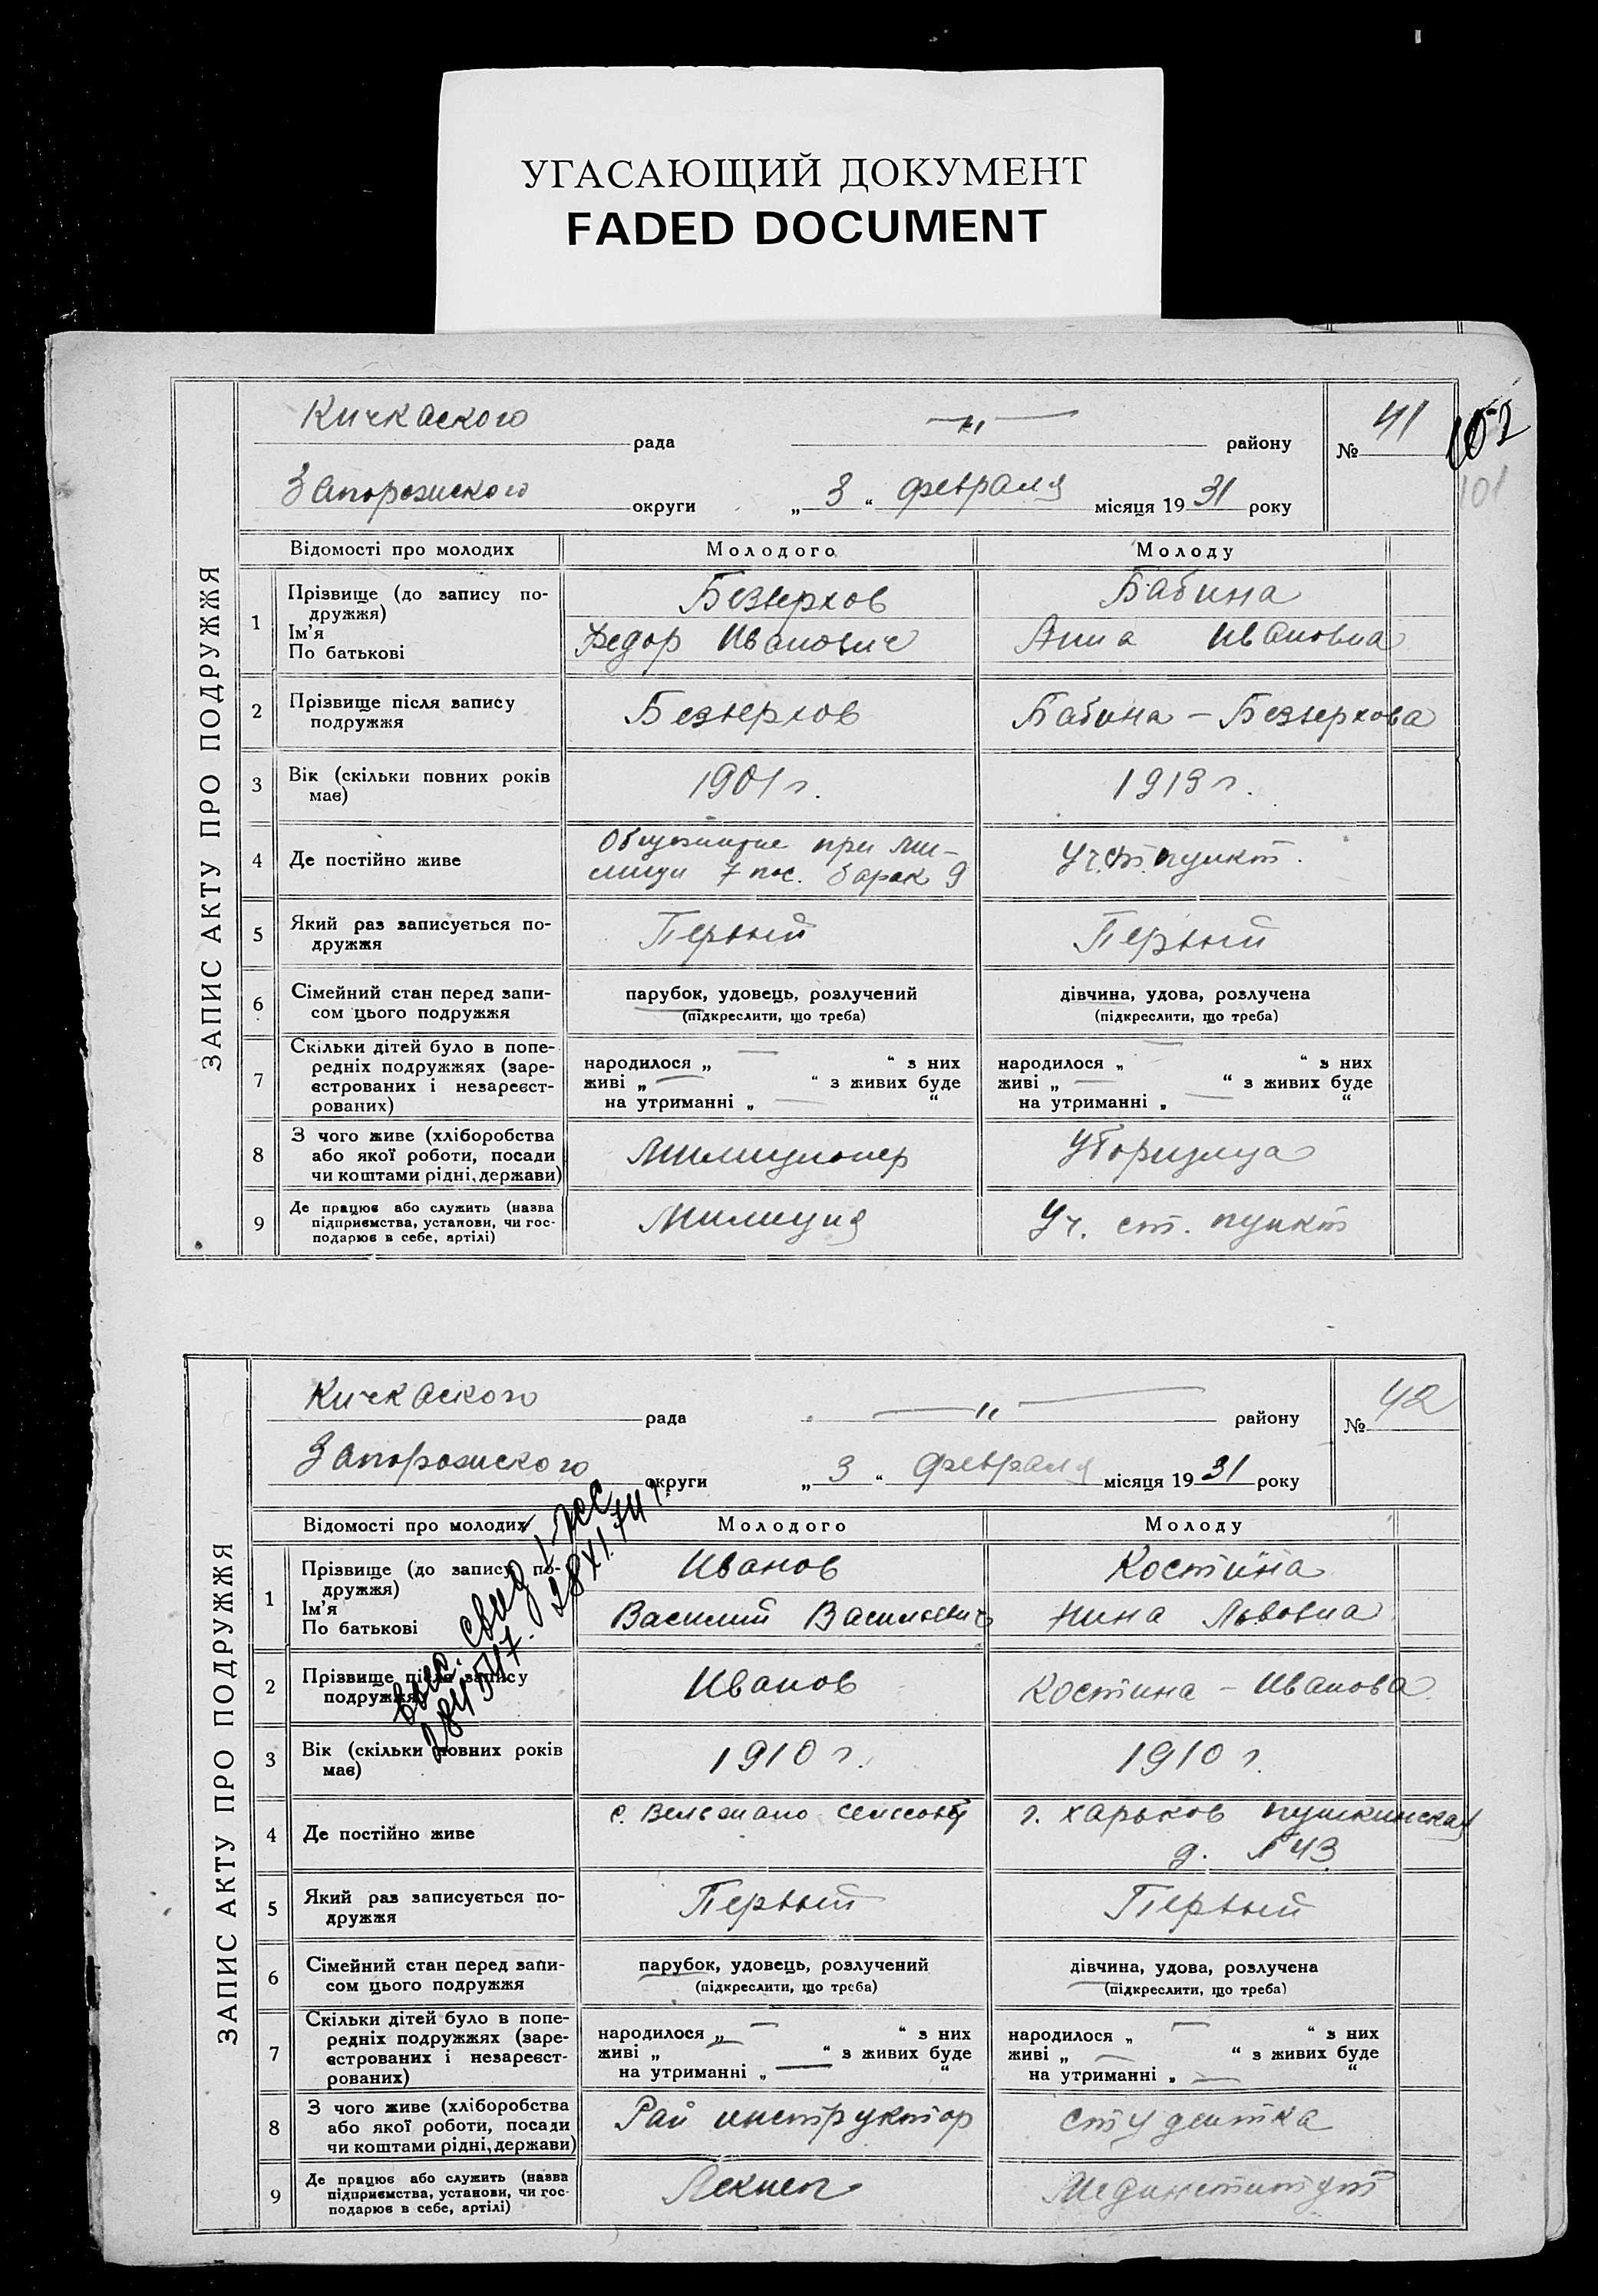 УГАСАЮЩИЙ ДОКУМЕНТ
FADED DOCUMENT
ЗАПИС АКТУ ПРО ПОДРУЖЖЯ
Кичкаского рада —„— району № 41 102
101
Запорожского округи „ 3 “ февраля місяця 19 31 року
Відомості про молодих Молодого Молоду
1 Прізвище (до запису по- Безверхов Бабина
дружжя)
Ім'я Федор Иванович Анна Ивановна
По батькові
2 Прізвище після запису Безверхов Бабина – Безверхова
подружжя
3 Вік (скільки повних років 1901 г. 1913 г.
має)
4 Де постійно живе Общежитие при ми- Уч. ст. пункт.
лиции 7 пос. барак 9
5 Який раз записується по- Первый Первый
дружжя
6 Сімейний стан перед запи- парубок, удовець, розлучений дівчина, удова, розлучена
сом цього подружжя (підкреслити, що треба) (підкреслити, що треба)
7 Скільки дітей було в попе-
редніх подружжях (заре- народилося „ — “ з них народилося „ — “ з них
єстрованих і незареєст- живі „ — “ з живих буде живі „ — “ з живих буде
рованих) на утриманні „ — “ на утриманні „ — “
8 З чого живе (хліборобства Милиционер Уборщица
або якої роботи, посади
чи коштами рідні, держави)
9 Де працює або служить (назва Милиция Уч. ст. пункт
підприємства, установи, чи гос-
подарює в себе, артілі)
ЗАПИС АКТУ ПРО ПОДРУЖЖЯ
Кичкаского рада —„— району № 42
Запорожского округи „ 3 “ февраля місяця 19 31 року
Відомості про молодих Молодого Молоду
1 Прізвище (до запису по- Иванов Костина
дружжя)
Ім'я Василий Васильевич Нина Львовна
По батькові
2 Прізвище після запису Иванов Костина – Иванова
подружжя
3 Вік (скільки повних років 1910 г. 1910 г.
має)
4 Де постійно живе с. г. Харьков Пушкинская
д. № 43
5 Який раз записується по- Первый Первый
дружжя
6 Сімейний стан перед запи- парубок, удовець, розлучений дівчина, удова, розлучена
сом цього подружжя (підкреслити, що треба) (підкреслити, що треба)
7 Скільки дітей було в попе-
редніх подружжях (заре- народилося „ — “ з них народилося „ — “ з них
єстрованих і незареєст- живі „ — “ з живих буде живі „ — “ з живих буде
рованих) на утриманні „ — “ на утриманні „ — “
8 З чого живе (хліборобства Рай инструктор студентка
або якої роботи, посади
чи коштами рідні, держави)
9 Де працює або служить (назва Мединститут
підприємства, установи, чи гос-
подарює в себе, артілі)